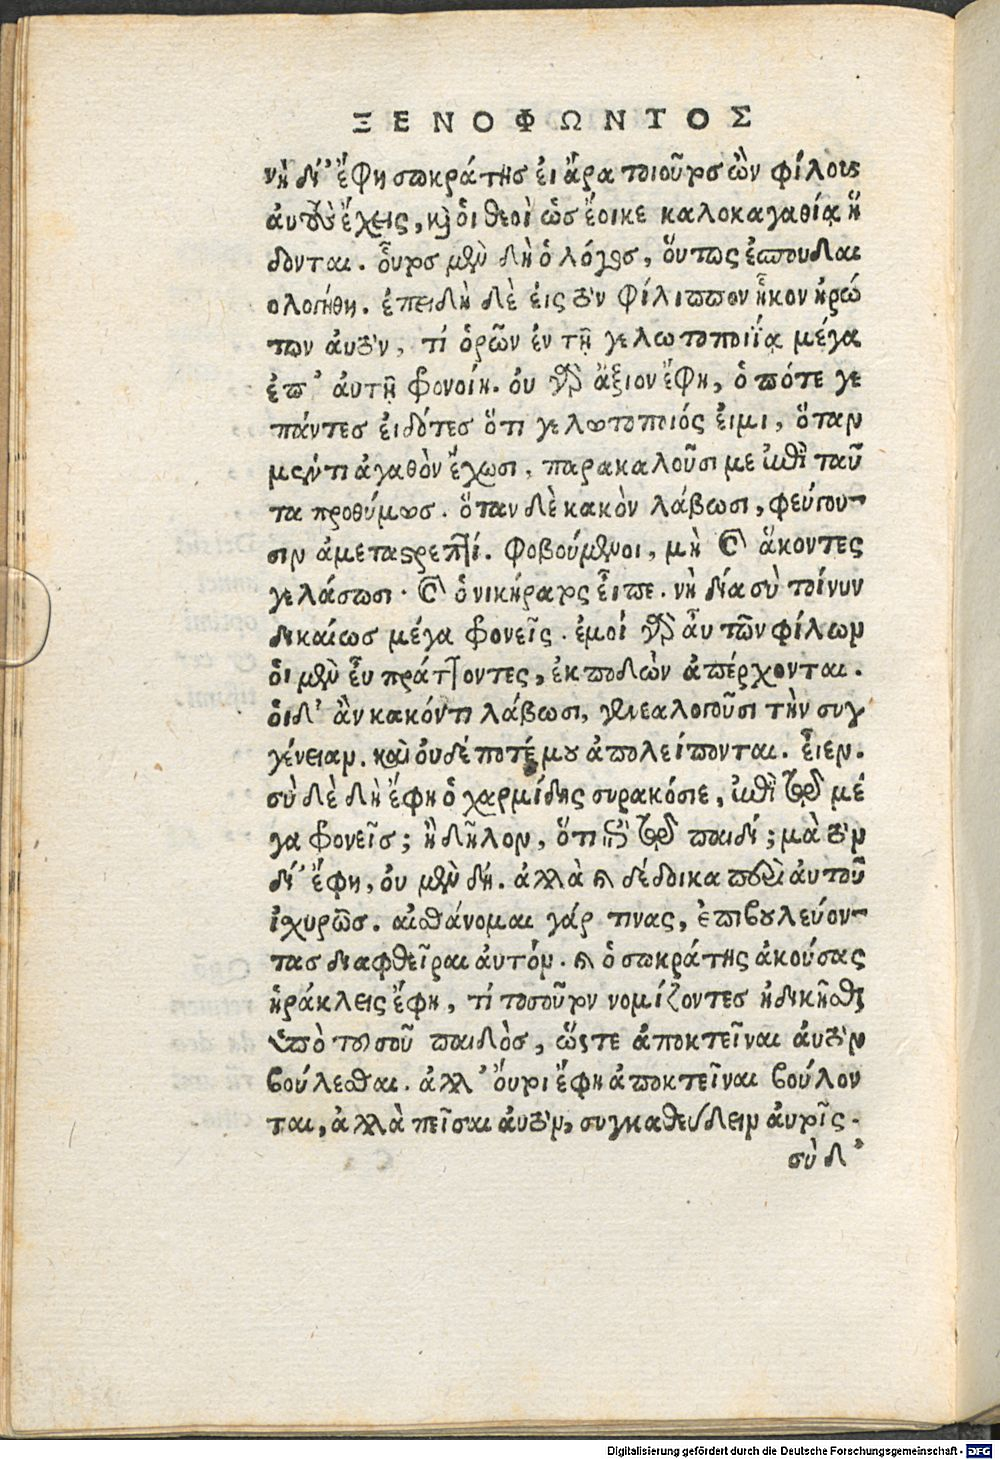 ΞΕΝΟΦΩΝΤΟΣ
νὴ δί' ἔφη σωκράτης εἰ ἄρα τοιοῦτος ὢν φίλους
αὐτοὺς ἔχεις, καὶ οἱ θεοὶ ὡς ἔοικε καλοκαγαθίᾳ ἥ
δονται. οὗτος μὲν δὴ ὁ λόγος, οὕτως ἐσπουδαι
ολογήθη. ἐπειδὴ δὲ εἰς τὸν φίλιππον ἧκον ἠρώ
των αὐτὸν, τί ὁρῶν ἐν τῇ γελωτοποιΐᾳ μέγα
ἐπ' αὐτῇ φρονοίη. οὐ γὰρ ἄξιον ἔφη, ὁπότε γε
πάντες εἰδότες ὅτι γελωτοποιός εἰμι, ὅταν
μέν τι ἀγαθὸν ἔχωσι, παρακαλοῦσι με ἐπὶ ταῦ
τα προθύμως. ὅταν δὲ κακὸν λάβωσι, φεύγου-
σιν ἀμεταστρεπτί. φοβούμενοι, μὴ καὶ ἄκοντες
γελάσωσι. καὶ ὁ νικήρατος εἶπε. νὴ δία σὺ τοίνυν
δικαίως μέγα φρονεῖς. ἐμοί γὰρ αὖ τῶν φίλων
οἱ μὲν εὖ πράττοντες, ἐκποδὼν ἀπέρχονται.
οἱ δ' ἂν κακόν τι λάβωσι, γενεαλογοῦσι τὴν συγ
γένειαν. καὶ οὐδέποτέ μου ἀπολείπονται. εἶεν.
σὺ δὲ δὴ ἔφη ὁ χαρμίδης συρακόσιε, ἐπὶ τῷ μέ
γα φρονεῖς; ἢ δῆλον, ὅτι ἐπὶ τῷ παιδί; μὰ τὸν
δί' ἔφη, οὐ μὲν δή. ἀλλὰ καὶ δέδοικα περὶ αὐτοῦ
ἰσχυρῶς. αἰσθάνομαι γάρ τινας, ἐπιβουλεύον-
τας διαφθεῖραι αὐτόν. καὶ ὁ σωκράτης ἀκούσας
ἡράκλεις ἔφη, τί τοσοῦτον νομίζοντες ἠδικῆσθαι
ὑπὸ τοῦ σοῦ παιδὸς, ὥστε ἀποκτεῖναι αὐτὸν
βούλεσθαι. ἀλλ' οὔτοι ἔφη ἀποκτεῖναι βούλον
ται, ἀλλὰ πεῖσαι αὐτὸν, συγκαθεύδειν αὐτοῖς.
σὺ δ'
Digitalisierung gefördert durch die Deutsche Forschungsgemeinschaft - DFG